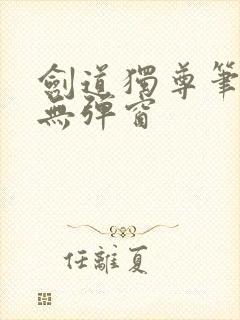 劍道獨尊筆
無彈窗
任離夏